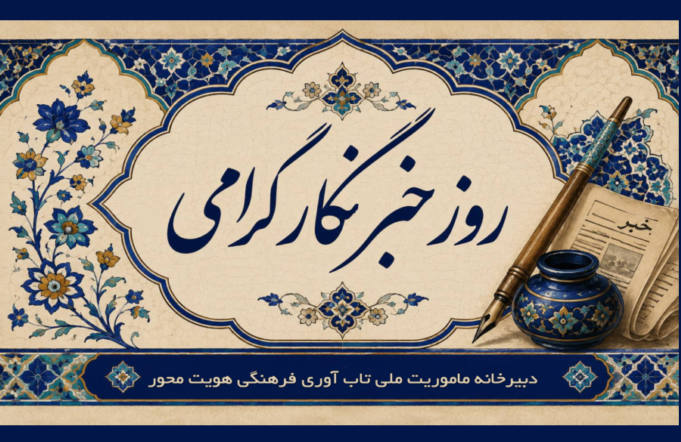 روز خبرنگار گرامی
خبر
دبیرخانه ماموریت ملی تاب آوری فرهنگی هویت محور